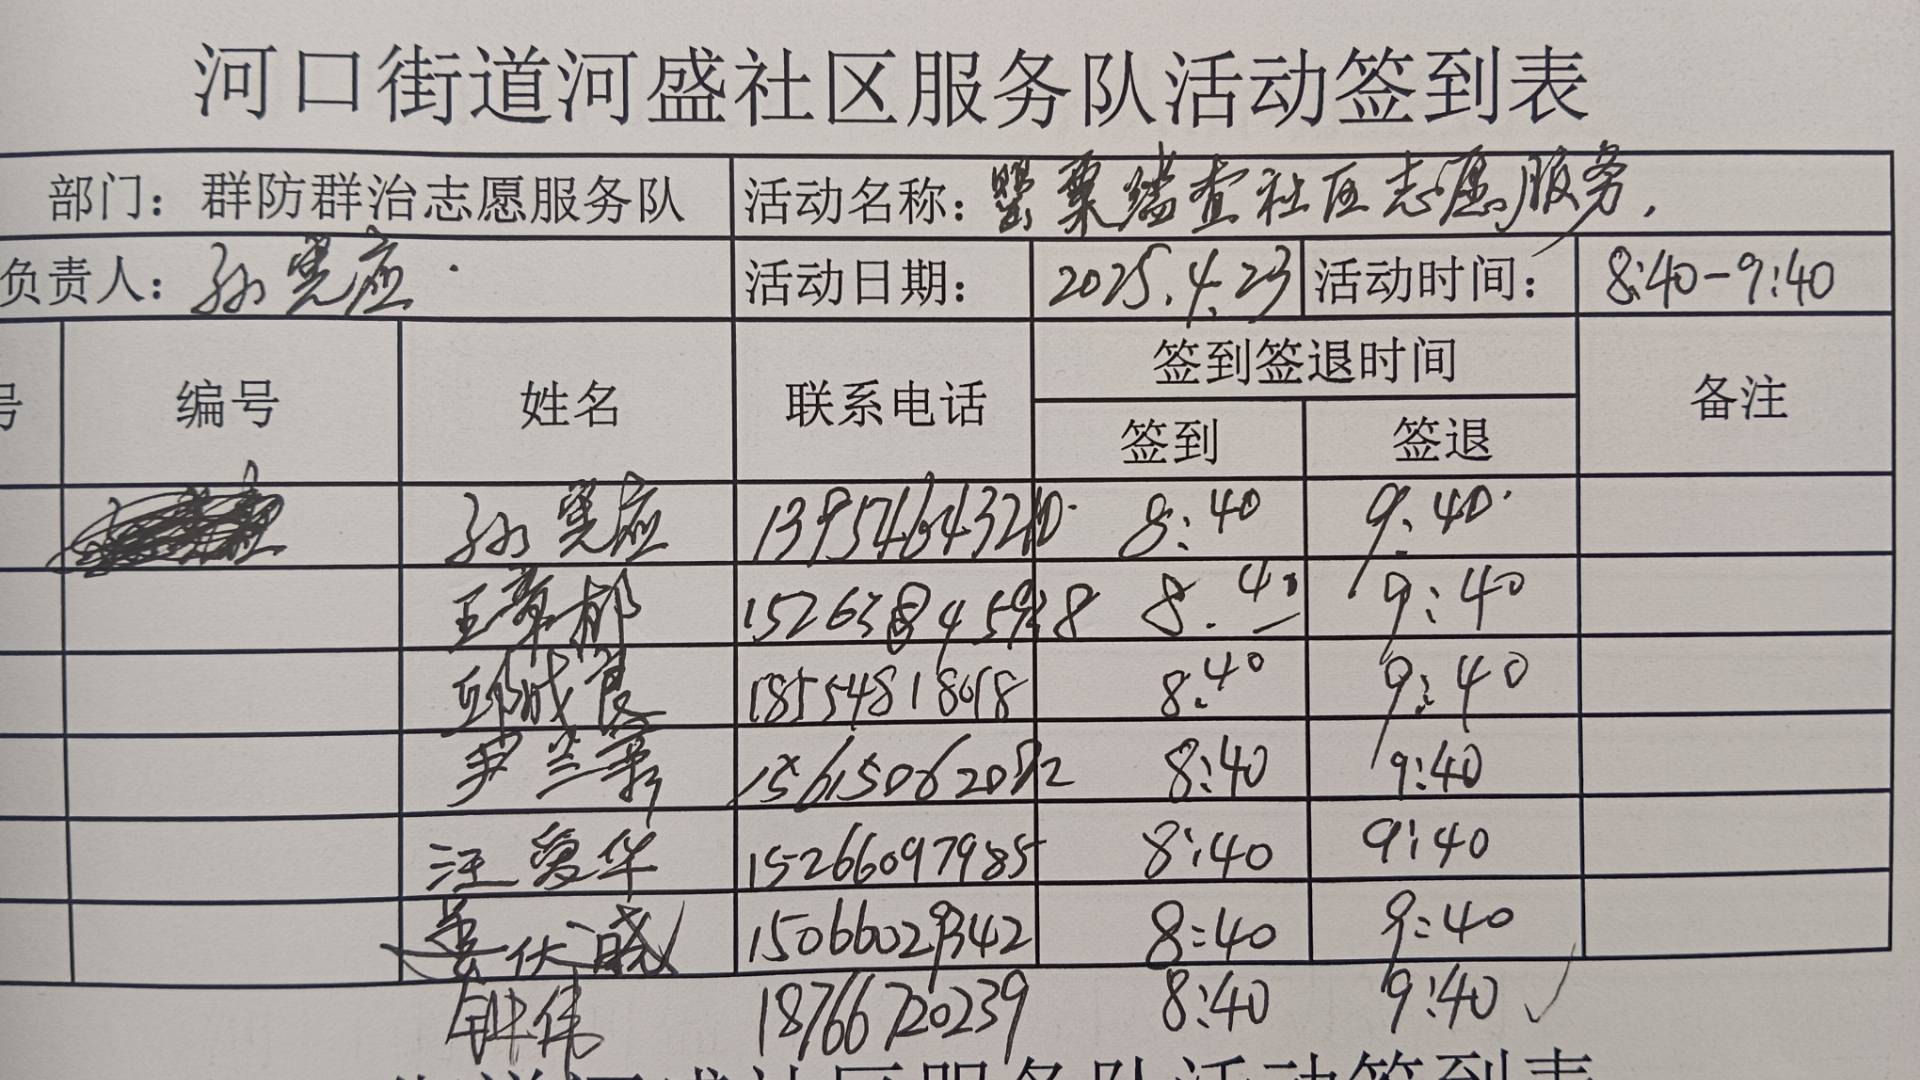 河口街道河盛社区服务队活动签到表
部门：群防群治志愿服务队 活动名称：罂粟踏查社区志愿服务.
负责人：孙 应 活动日期： 2025.4.23 活动时间： 8:40-9:40
号 编号 姓名 联系电话 签到签退时间 备注
签到 签退
孙 应 8:40 9:40
王 8:40 9:40
邱成良 18554818018 8:40 9:40
尹兰 8:40 9:40
汪爱华 15266097985 8:40 9:40
姜伏 15066029342 8:40 9:40
钟伟 18766720239 8:40 9:40 ✓
街道河盛社区服务队活动签到表